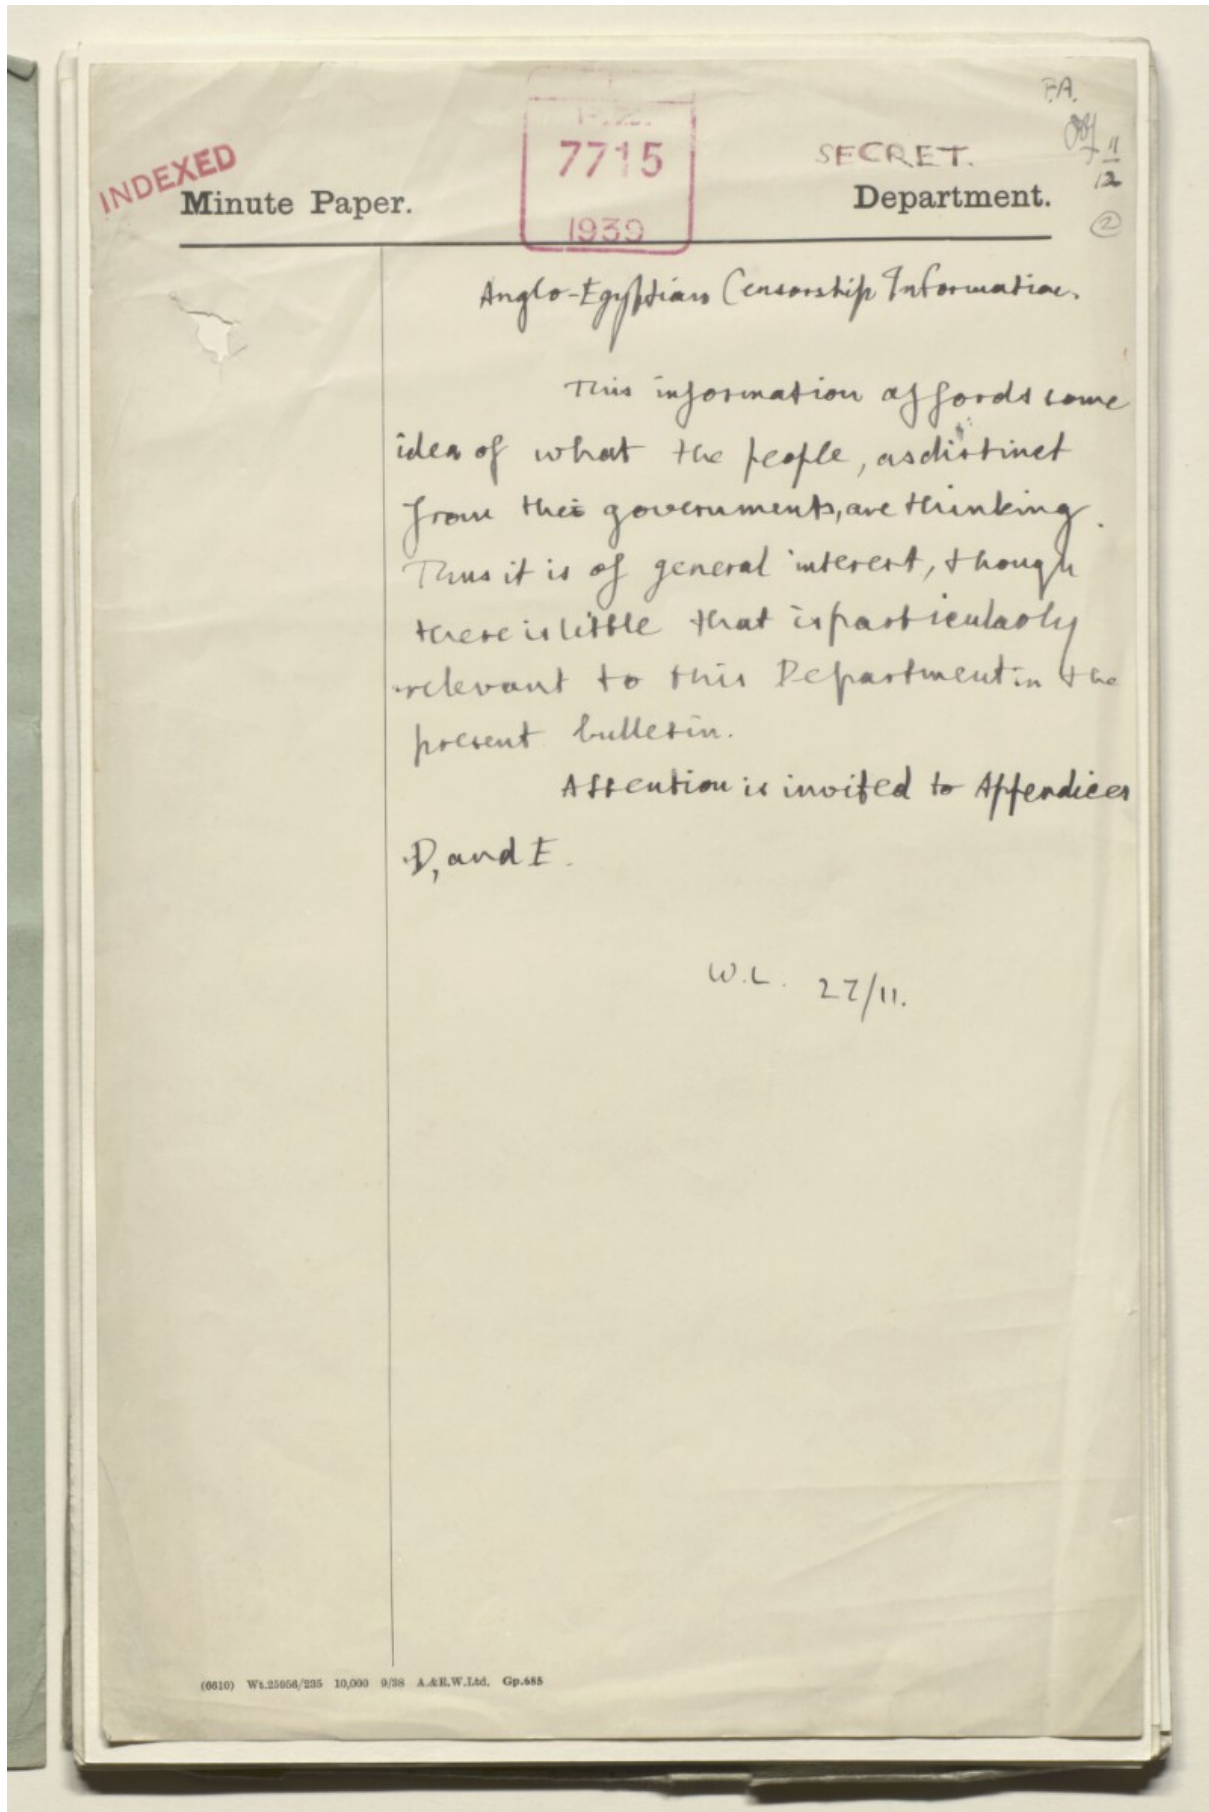 P.A.
11
12
2
INDEXED
7715
1939
SECRET.
Minute Paper.
Department.
Anglo-Egyptian Censorship Information.
This information affords some
idea of what the people, as distinct
from the governments, are thinking.
Thus it is of general interest, though
there is little that is particularly
relevant to this Department in the
present bulletin.
Attention is invited to Appendices
D, and E.
W.L. 27/11.
(6610) Wt.25956/235 10,000 9/38 A.&E.W.Ltd. Gp.685